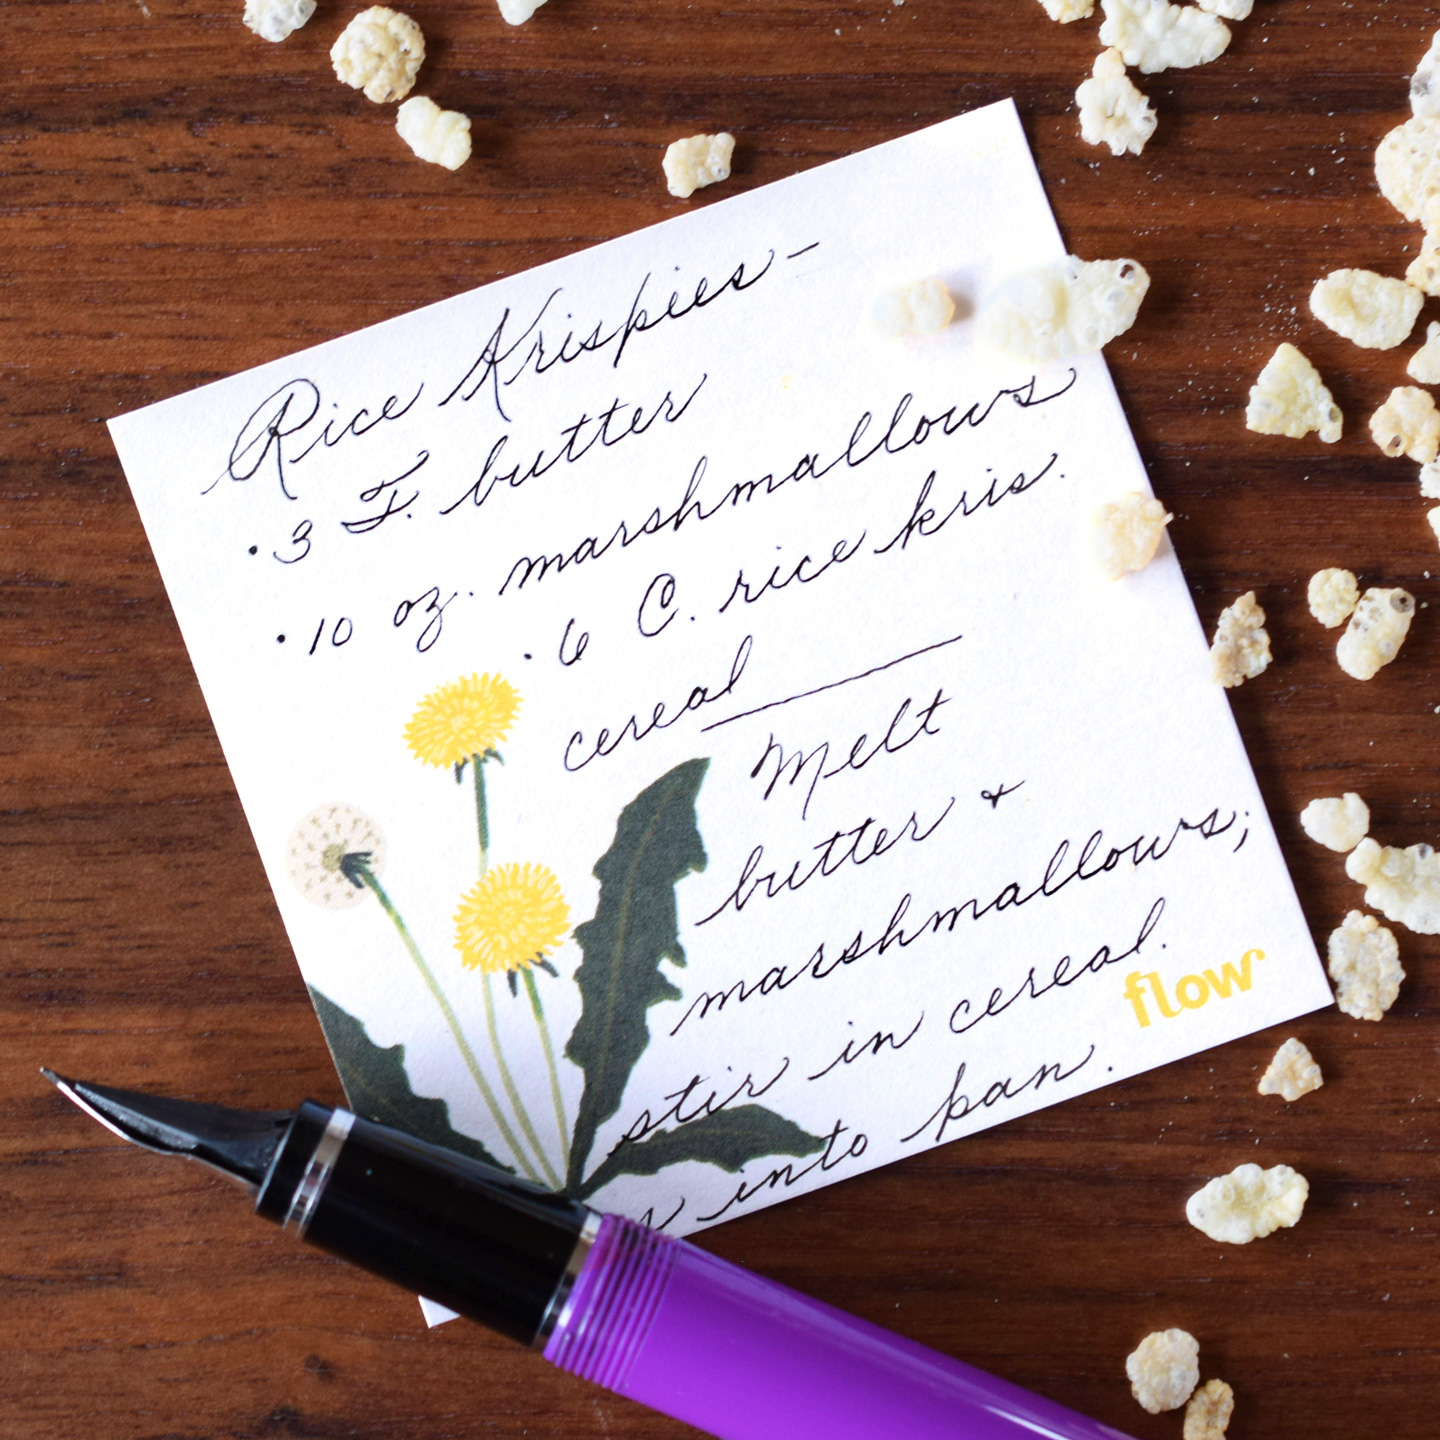 Rice Krispies -
· 3 T. butter
· 10 oz. marshmallows
· 6 C. rice kris.
cereal
Melt
butter &
marshmallows;
stir in cereal.
into pan.
flow